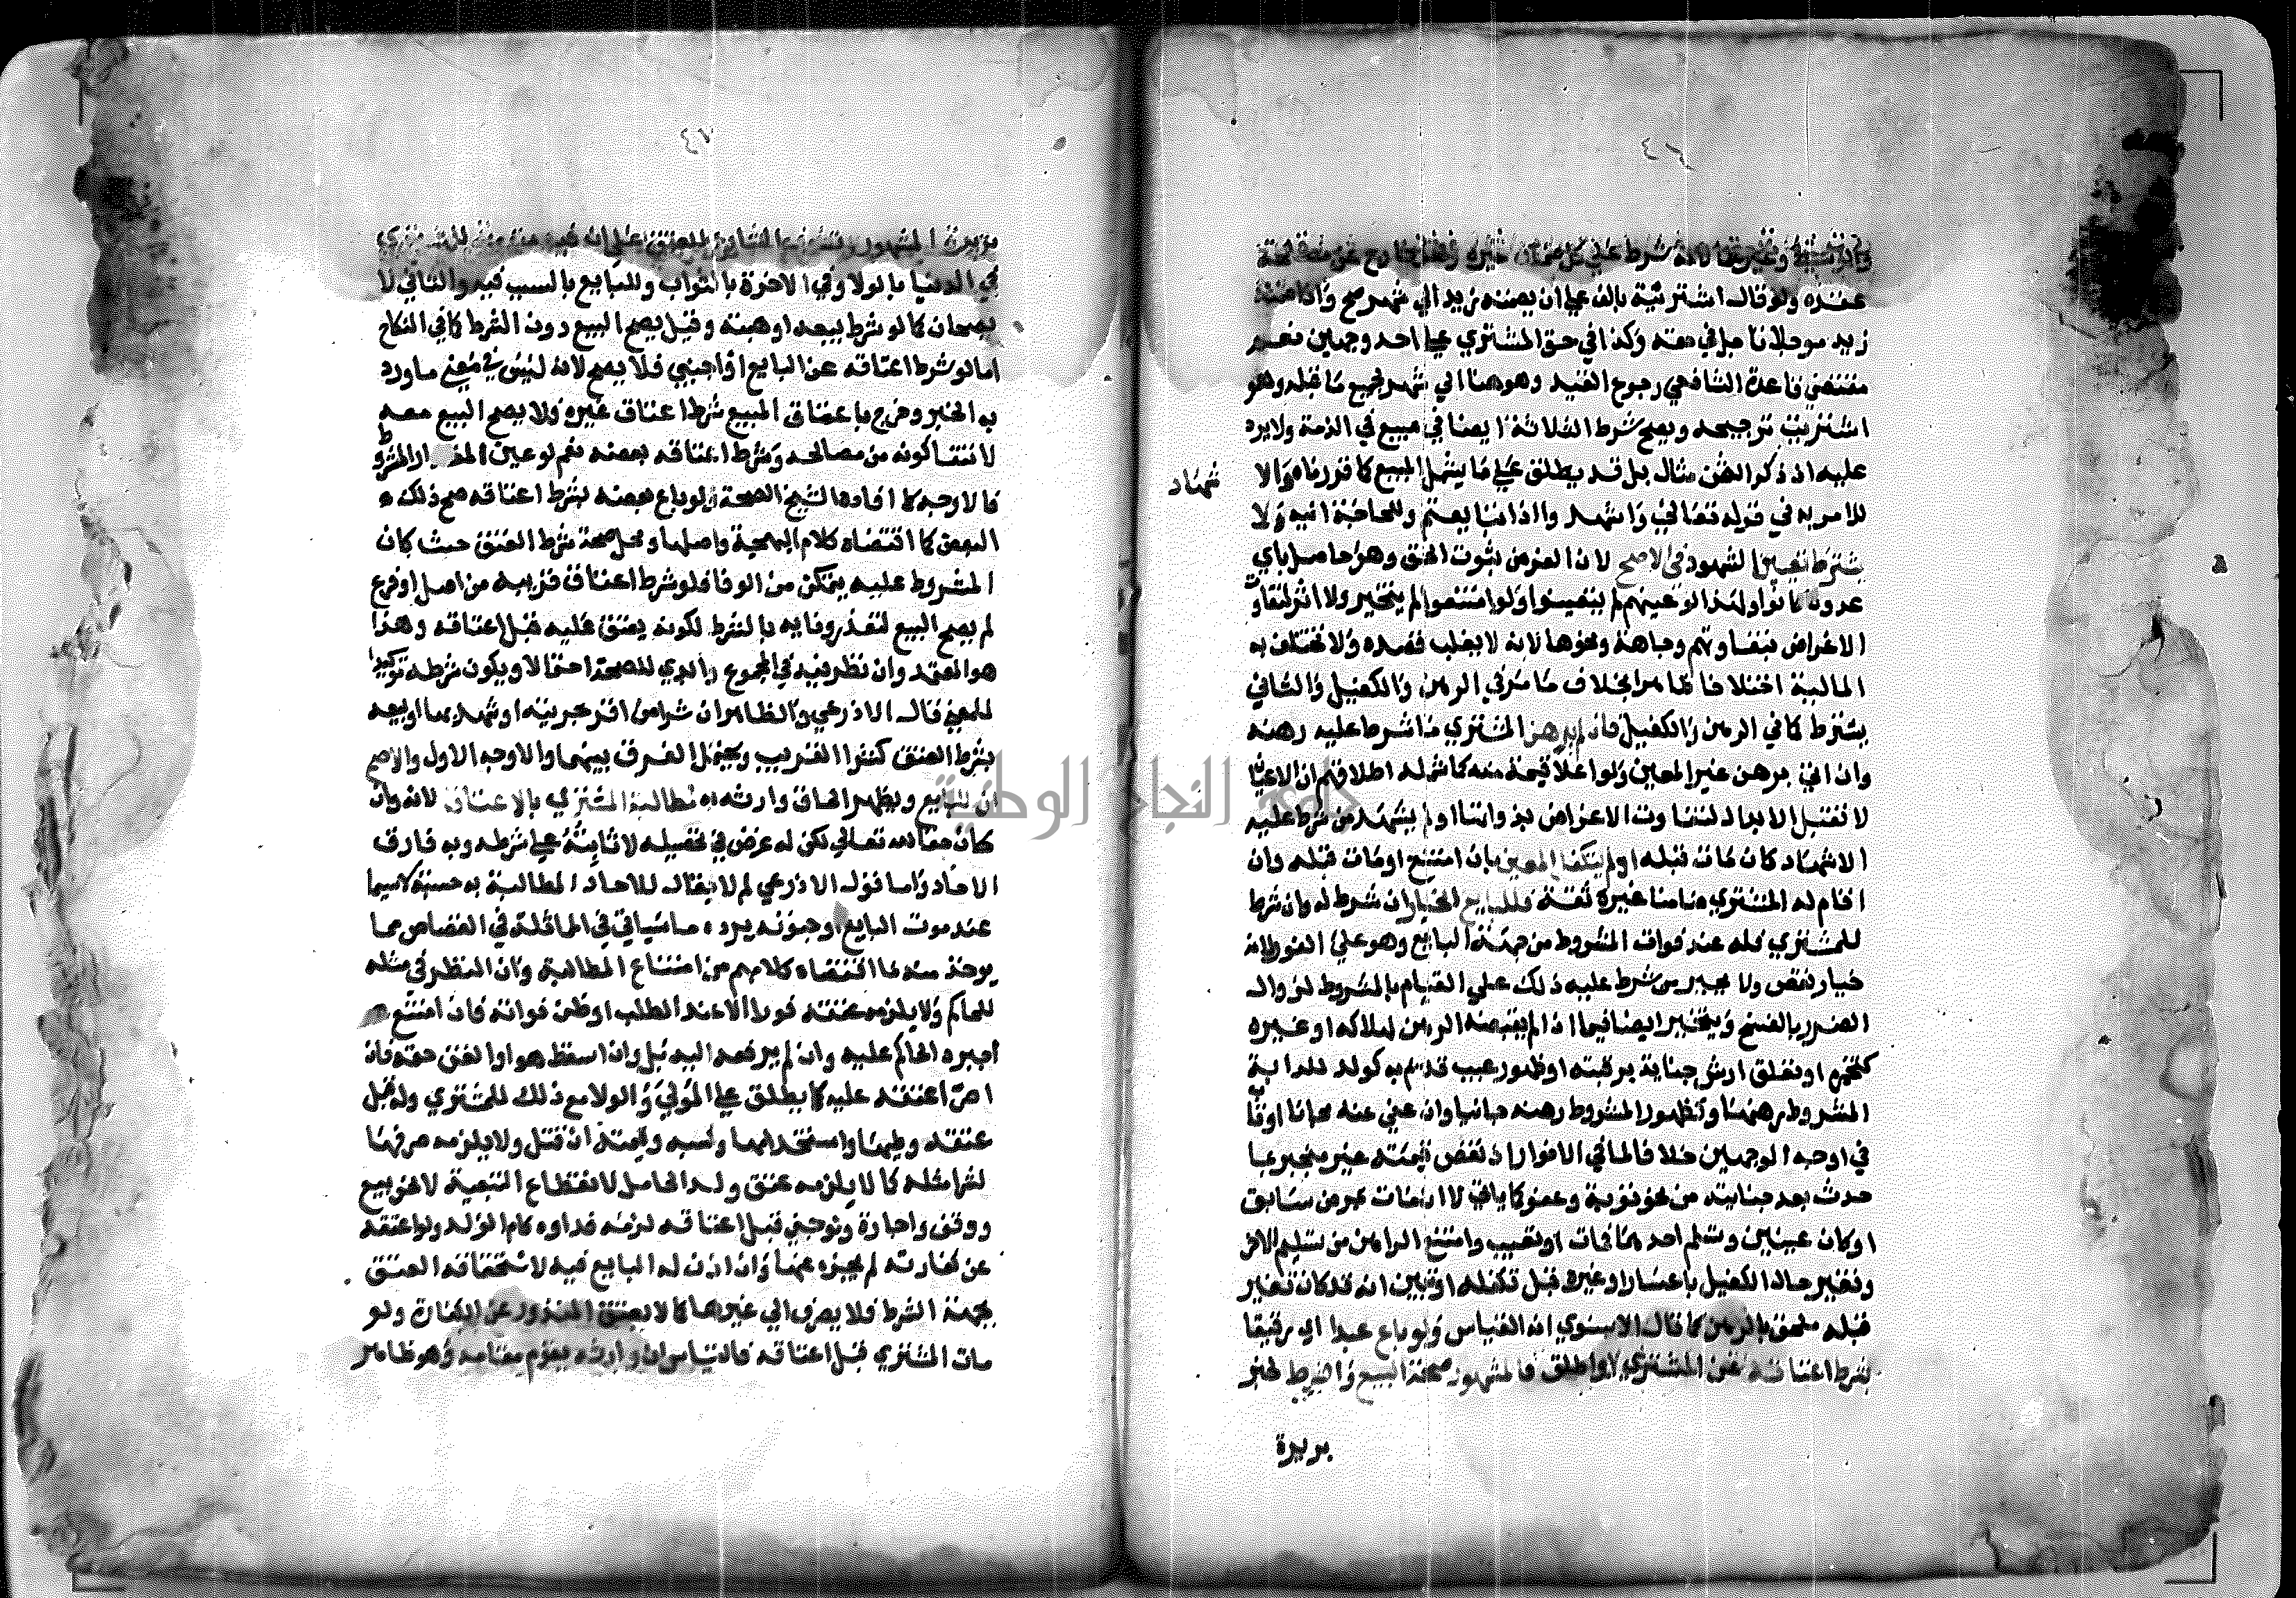 ٤٦
عنده ولو قال اشتريته بالف علي ان يضمنه زيد الي شهر صح واذا ضمنه
زيد موجلا تاجل في حقه وكذا في حق المشتري علي احد وجهين نعم
مقتضي قاعدة الشافعي رجوع القيد وهو هنا الي شهر لجميع ما قبله وهو
اشتريت ترجيحه ويصح شرط الثلاثة ايضا في مبيع في الذمة ولا يرد
عليه اذ ذكر الثمن مثال بل قد يطلق علي ما يشمل المبيع كما قررناه والا
شهاد
للامر به في قوله تعالي واشهدوا اذا تبايعتم وللحاجة اليه ولا
يشترط تعيين الشهود في الاصح لان الغرض ثبوت الحق وهو حاصل باي
عدول كانوا ولهذا لو عينهم لم يتعينوا ولو امتنعوا لم يتخير ولا اثر لتفاوت
الاغراض بتفاوتهم وجاهة ونحوها لانه لا يغلب قصده ولا تختلف به
المالية اختلافا ظاهرا بخلاف ما مر في الرهن والكفيل والثاني
يشترط كما في الرهن والكفيل فان لم يرهن المشتري ما شرط عليه رهنه
وان اتي برهن غير المعين ولو اعلا قيمة منه كما شمله اطلاقهم اذ الاعيان
لا تقبل الابدال لتفاوت الاغراض بذواتها او لم يشهد من شرط عليه
الاشهاد كان مات قبله او لم يتكفل المعين بان امتنع او مات قبله وان
اقام له المشتري ضامنا غيره ثقة فللبايع الخيار ان شرط له وان شرط
للمشتري فله عند فوات المشروط من جهة البايع وهو علي الفور لانه
خيار نقص ولا يجبر من شرط عليه ذلك علي القيام بالمشروط لزوال
الضرر بالفسخ ويتخير ايضا فيما اذا لم يقبضه الرهن لهلاكه او غيره
كتخمره او تعلق ارش جناية برقبته او ظهور عيب قديم به كولد للدابة
المشروط رهنها وظهور المشروط رهنه جانيا وان عفي عنه مجانا او تاب
في اوجه الوجهين خلافا لما في الانوار اذ نقص قيمته غير منجبر بما
حدث بعد جنايته من نحو توبة وعفو كما ياتي لا ان مات بمرض سابق
او كان عينين وتسلم احدهما فمات او تعيب وامتنع الراهن من تسليم الاخر
وتغير حال الكفيل باعسار او غيره قبل تكفله او تبين انه قد كان تغير
قبله ملحق بالرهن كما قال الاسنوي انه القياس ولو باع عبدا اي رقيقا
بشرط اعتاقه عن المشتري او اطلق فالمشهور صحة البيع والشرط لخبر
بريرة
٤٧
بريرة المشهور
في الدنيا بالولا وفي الاخرة بالثواب وللبايع بالسبب فيه والثاني لا
يصحان كما لو شرط بيعه او هبته وقيل يصح البيع دون الشرط كما في النكاح
اما لو شرط اعتاقه عن البايع او اجنبي فلا يصح لانه ليس في معني ما ورد
به الخبر وخرج باعتاق المبيع شرط اعتاق غيره فلا يصح البيع معه
لانتفا كونه من مصالحه وشرط اعتاقه بعضه نعم لو عين المقدار المشروط
فالاوجه كما افاده الشيخ الصحة ولو باع بعضه بشرط اعتاقه صح ذلك
البعض كما اقتضاه كلام البهجة واصلها ومحل صحة شرط العتق حيث كان
المشروط عليه يتمكن من الوفا فلو شرط اعتاق قريبه من اصل او فرع
لم يصح البيع لتعذر وفايه بالشرط لكونه يعتق عليه قبل اعتاقه وهذا
هو المعتمد وان نظر فيه في المجموع وابدي للصحة احتمالا ويكون شرطه توكيدا
للمعني قال الاذرعي والظاهر ان شرا من اقر بحريته او شهد بها او بعه
بشرط العتق كشرا القريب ويحتمل الفرق بينهما والاوجه الاول والاصح
ان للبايع ويظهر الحاق وارثه به مطالبة المشتري بالاعتاق لانه وان
كان حقا لله تعالي لكن له غرض في تحصيله لاثابته علي شرطه وبه فارق
الاحاد واما قول الاذرعي لم لا يقال للاحاد المطالبة به حسبة لاسيما
عند موت البايع او جنونه يرده ما سياتي في المماثلة في القصاص مما
يوخذ منه لما اقتضاه كلامهم من امتناع المطالبة وان النظر في مثله
للحاكم ولا يلزمه عتقه فورا الا عند الطلب او ظن فواته فان امتنع
اجبره الحاكم عليه وان لم يرفعه اليه بل وان اسقط هو او القن حقه فان
اصر اعتقه عليه كما يطلق علي المولي والولا مع ذلك للمشتري وله قبل
عتقه وطيها واستخدامها وكسبه وقيمته ان قتل ولا يلزمه صرفها
لشرا مثله كما لا يلزمه عتق ولد الحامل لانقطاع التبعية لا نحو بيع
ووقف واجارة ولو جني قبل اعتاقه لزمه فداوه كام الولد ولو اعتقه
عن كفارته لم يجزه عنها وان اذن له البايع فيه لاستحقاقه العتق
بجهة الشرط فلا يصرف الي غيرها كما لا يعتق المنذور عن الكفارة ولو
مات المشتري قبل اعتاقه فالقياس ان وارثه يقوم مقامه وهو ظاهر